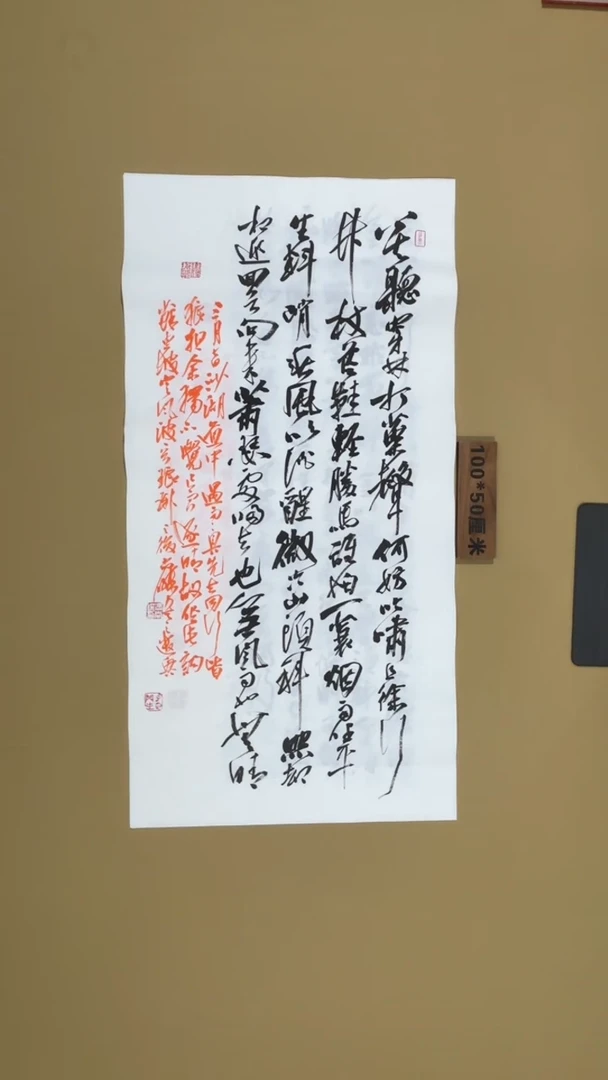 莫聽穿林打葉聲何妨吟嘯且徐行
竹杖芒鞋輕勝馬誰怕一蓑烟雨任平
生料峭春風吹酒醒微冷山頭斜照却
相迎回首向来蕭瑟處歸去也無風雨也無晴
三月七日沙湖道中遇雨雨具先去同行皆
狼狽余獨不覺已而遂晴故作此詞
定風波
100*50厘米